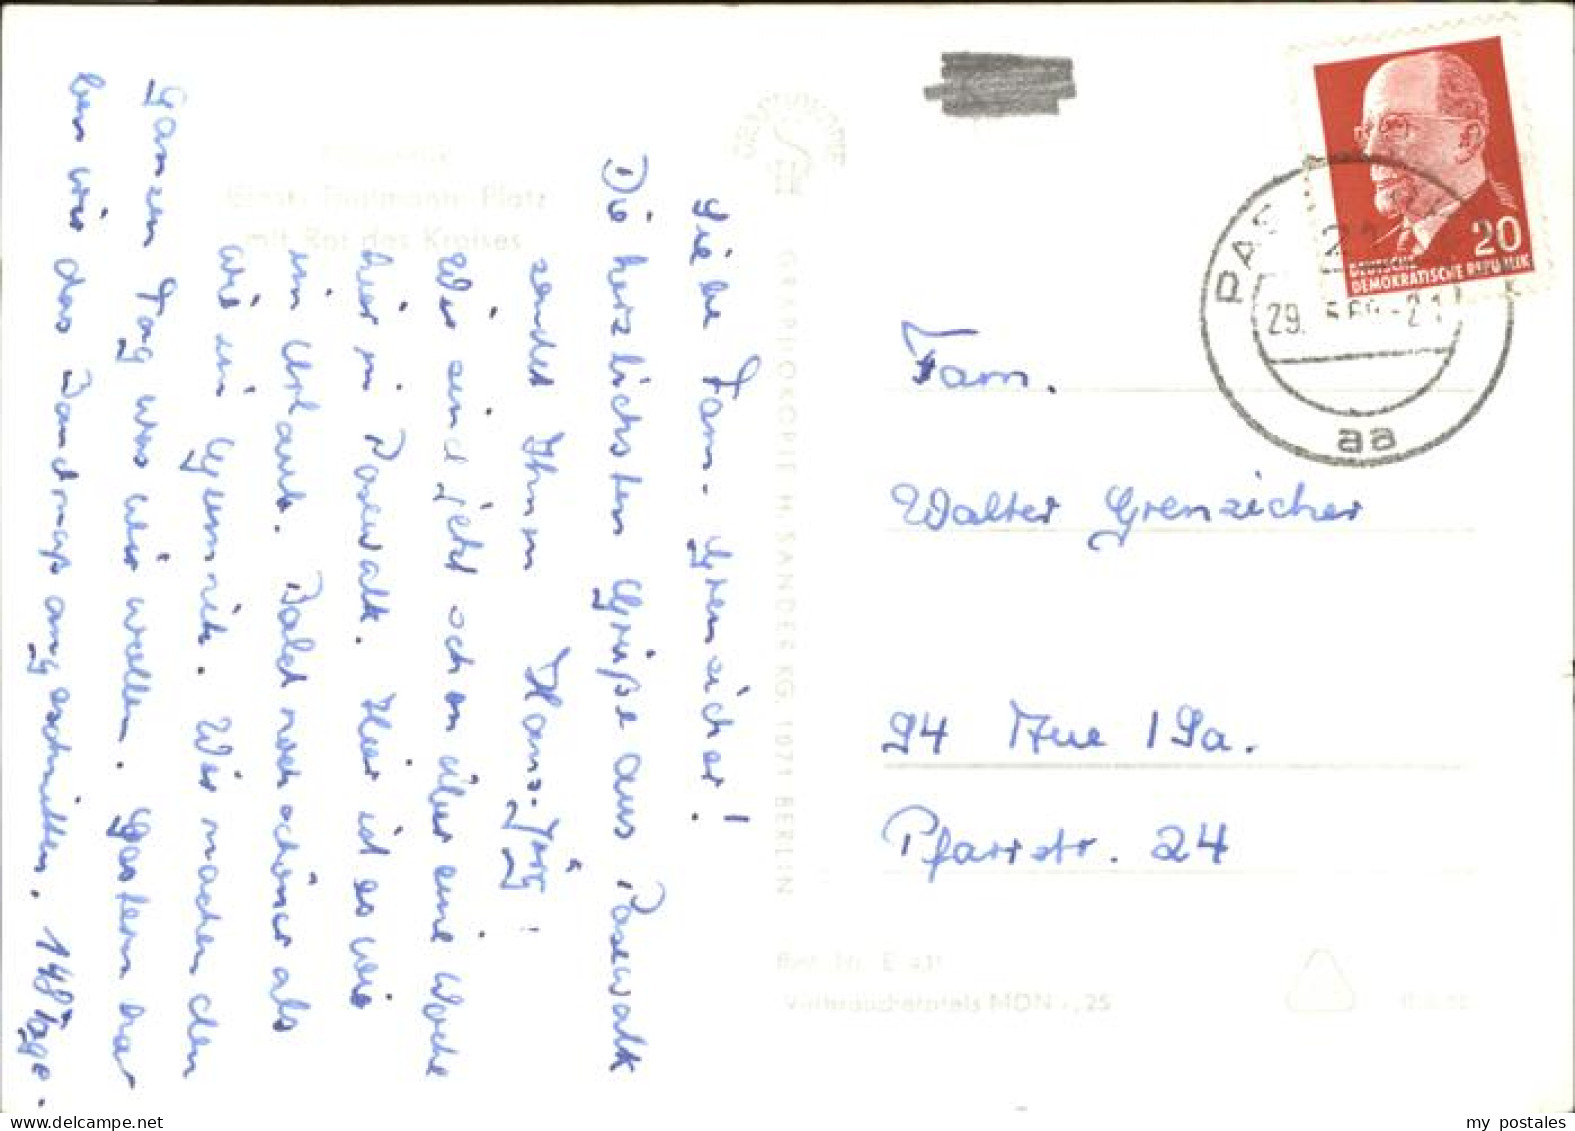 Liebe Fam. Grenzicher!
Die herzlichsten Grüße aus Pasewalk
sendet Ihnen Hans-Jörg!
Wir sind jetzt schon über eine Woche
hier in Pasewalk. Hier ist es wie
im Urlaub. Bald noch schöner als
wie in
Wir machen den
ganzen Tag was wir wollen. Gestern ha-
ben wir das Bandmaß angeschnitten. 148 Tage.
Ernst-Thälmann-Platz
mit Rat des Kreises
GRAPHOKOPIE H. SANDER KG, 1071 BERLIN
Fam.
Walter Grenzicher
94 Aue / Sa.
Pfarrstr. 24
Verbraucherpreis MDN ,25
20
DEUTSCHE
DEMOKRATISCHE REPUBLIK
PAS
29.
-21
aa
my postales